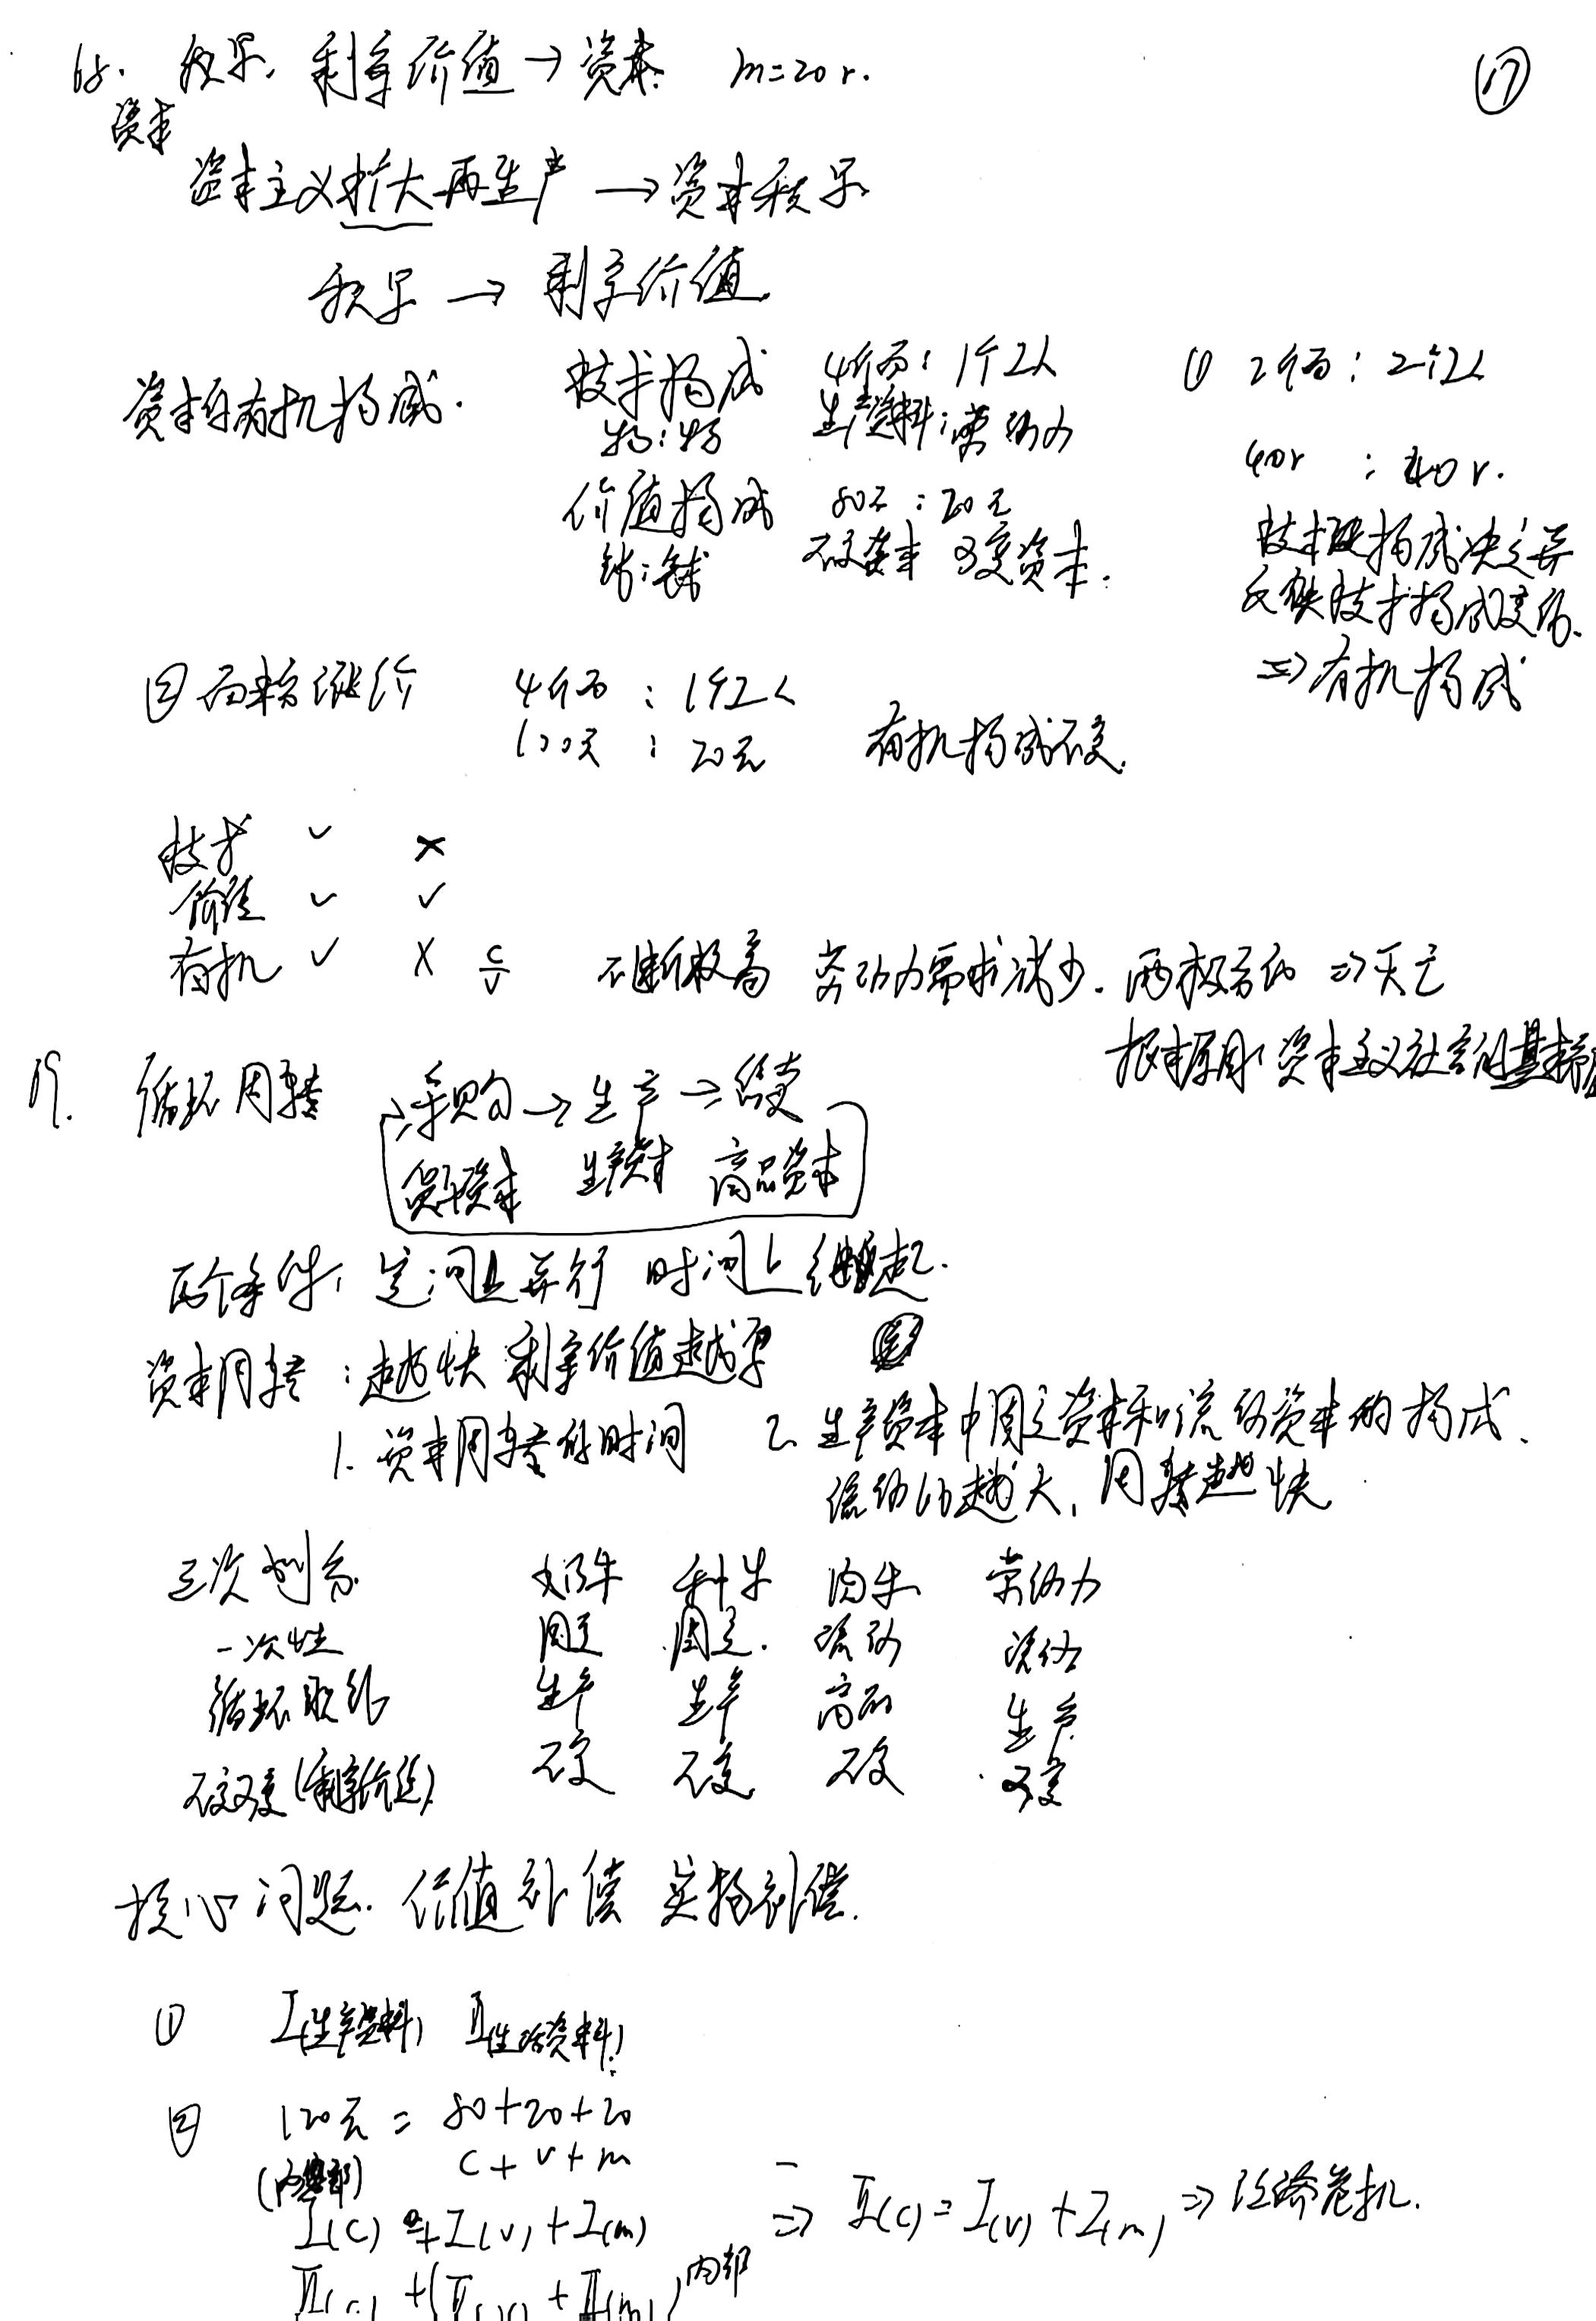 68. 积累. 剩余价值→资本. m=20r.
⑰
资本
资本主义扩大再生产 → 资本积累
积累 → 剩余价值.
资本有机构成. 技术构成 4斤面: 1个工人 ① 2斤面: 2个工人
物:物 生产资料:劳动力
40r : 40r.
价值构成 80元:20元
钱:钱 不变资本 可变资本.
技术构成决定并
反映技术构成变动.
⇒有机构成
② 面粉涨价 4斤面: 1个工人
100元 : 20元 有机构成不变.
技术 ✓ ×
价值 ✓ ✓
有机 ✓ × c/v 不断提高 劳动力需求减少. 两极分化 ⇒灭亡
根本原因: 资本主义社会的基本
69. 循环周转 采购→生产→售卖
货币资本 生产资本 商品资本
两个条件: 空间上并行 时间上继起.
资本周转: 越快 剩余价值越多
1. 资本周转的时间 2. 生产资本中固定资本和流动资本的构成.
流动的越大, 周转越快
三次划分. 奶牛 种牛 肉牛 劳动力
一次性 固定 固定. 流动 流动
循环职能 生产 生产 商品 生产
不变可变(剩余价值) 不变 不变 不变 可变
核心问题. 价值补偿 实物补偿.
① I(生产资料) II(生活资料)
② 120元 = 80+20+20
(内部) c+v+m
I(c) + I(v) + I(m) ⇒ II(c) = I(v) + I(m) ⇒ 经济危机.
II(c) + (II(v) + II(m)) 内部